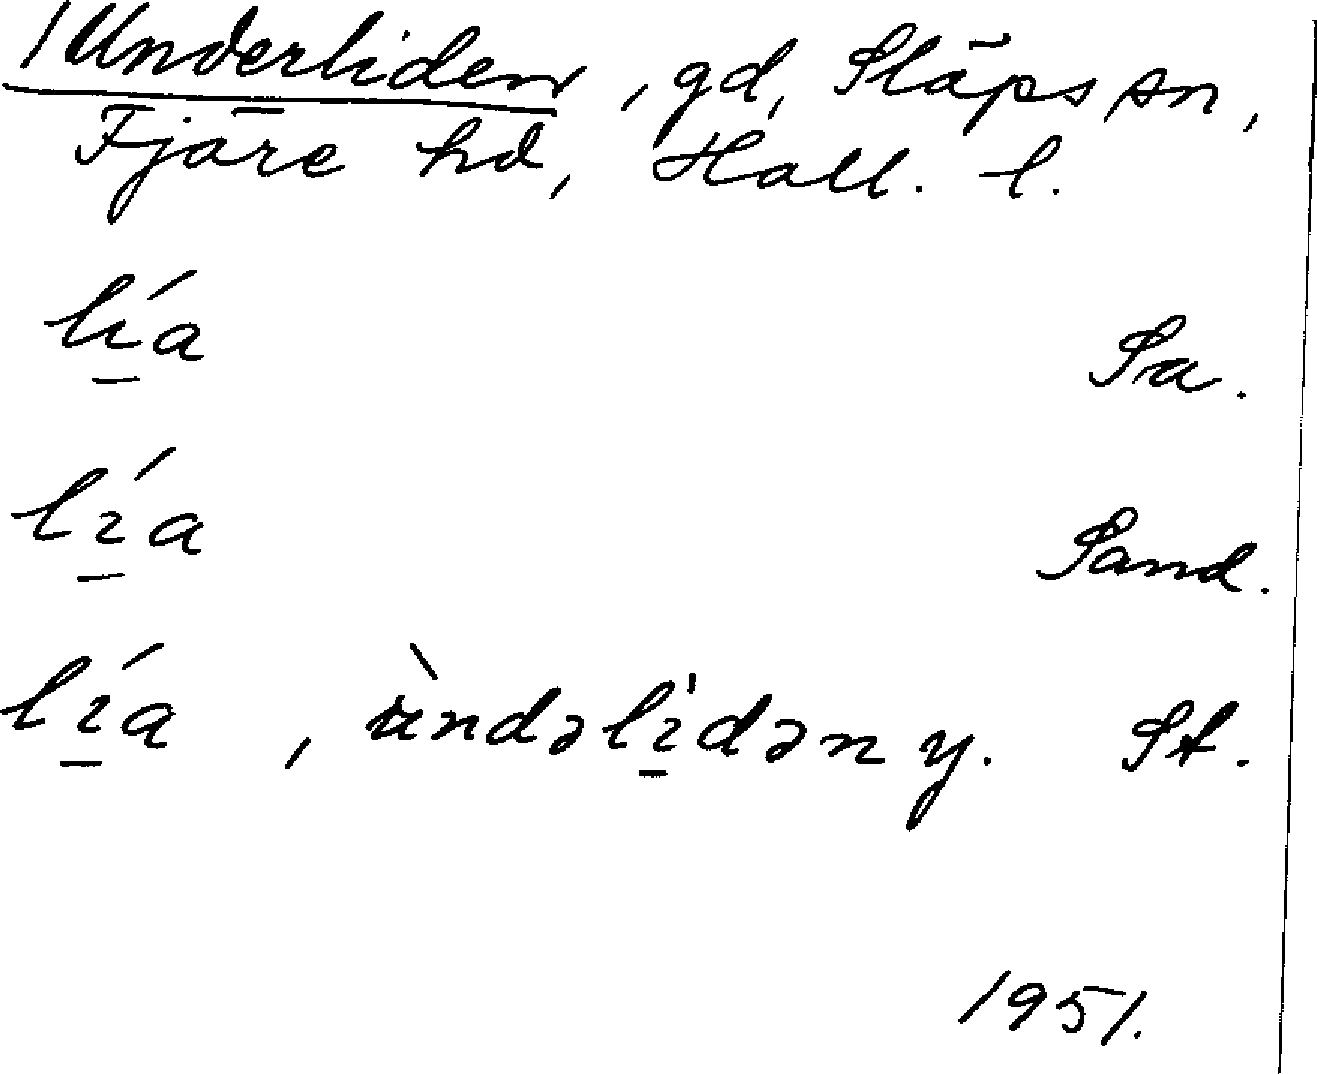 /Underliden, gd, Släps sn,
Fjäre hd, Hall. l.
lí̱a Sa.
lɩ̱́a Sand.
lɩ̱́a, ùndəlɩ̱̍dən y. St.
1951.